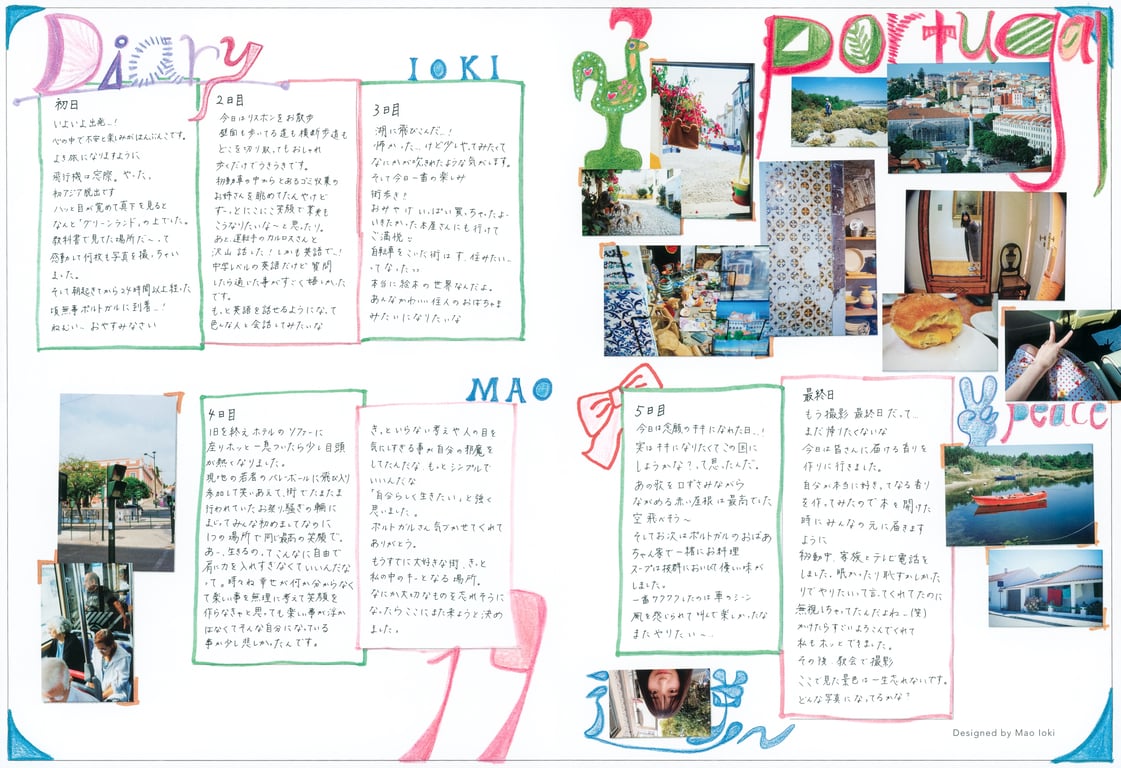 Diary
IOKI
初日
いよいよ出発_!
心の中で不安と楽しみがはんぶんこです。
より旅になりますように
飛行機は窓際。やった。
初アジア脱出です
ハッと目が覚めて真下を見ると
なんと「グリーンランド」の上でした。
教科書で見てた場所だ〜って
感動して何枚も写真を撮っちゃい
ました。
そして朝起きてから24時間以上経った
頃無事ポルトガルに到着_!
ねむい… おやすみなさい
2日目
今日はリスボンをお散歩
壁面も歩いてる道も横断歩道も
どこを切り取ってもおしゃれ
歩くだけでうきうきです。
初動車の中からとあるゴミ収集の
お姉さんを眺めてたんやけど
ずーっとにこにこ笑顔で業務も
こうなりたいな〜と思ったり。
あと、運転手のカルロスさんと
沢山話した!しかも英語で_!
中学レベルの英語だけど質問
したら通じた事がすごく嬉しかった
です。
もっと英語を話せるようになって
色んな人と会話してみたいな
3日目
湖に飛びこんだ_!
怖かった…けど少しやってみたくて
なにかが吹きれたような気がします。
そして今日一番の楽しみ
街歩き!
おみやげいっぱい買っちゃったよ-
いきたかった本屋さんにも行けて
ご満悦
自転車をこいだ街はす、住みたい…
ってなった
本当に絵本の世界なんだよ。
あんなかわいい住人のおばちゃま
みたいになりたいな
MAO
4日目
1日を終えホテルのソファーに
座りホッと一息ついたら少し目頭
が熱くなりました。
現地の若者のバレーボールに飛び入り
参加して笑いあえて、街でたまたま
行われていたお祭り騒ぎの輪に
まじってみんな初めましてなのに
1つの場所で同じ最高の笑顔で。
あー、生きるのってこんなに自由で
肩に力を入れすぎなくていいんだな
って。時々ね 幸せが何か分からなく
て楽しい事を無理に考えて笑顔を
作らなきゃと思っても楽しい事が浮か
ばなくてそんな自分になっている
事が少し悲しかったんです。
きっといらない考えや人の目を
気にしすぎる事が自分の邪魔を
してたんだな。もっとシンプルで
いいんだな
「自分らしく生きたい」と強く
思いました。
ポルトガルさん気づかせてくれて
ありがとう。
もうすでに大好きな街。きっと
私の中のキーとなる場所。
なにか大切なものを忘れそうに
なったらここにまた来ようと決め
ました。
17
Portugal
5日目
今日は念願のキキになれた日_!
実はキキになりたくてこの国に
しようかな?って思ったんだ。
あの歌を口ずさみながら
ながめる赤い屋根は最高でした
空飛べそう〜
そしてお次はポルトガルのおばあ
ちゃん家で一緒にお料理
スープは抜群においしくて優しい味が
しました。
一番ワクワクしたのは車のシーン
風を感じられて叫んで楽しかったな
またやりたい〜…
最終日
もう撮影最終日だって…
まだ帰りたくないな
今日は皆さんに届ける香りを
作りに行きました。
自分が本当に好きってなる香り
を作ってみたので本を開けた
時にみんなの元に届きます
ように
移動中、家族とテレビ電話を
しました。眠かったり恥ずかしかった
りでやりたいって言ってくれてたのに
無視しちゃってたんだよね〜(笑)
かけたらすごいよろこんでくれて
私もホッとできました。
その後、教会で撮影
ここで見た景色は一生忘れないです。
どんな写真になってるかな?
peace
Designed by Mao Ioki